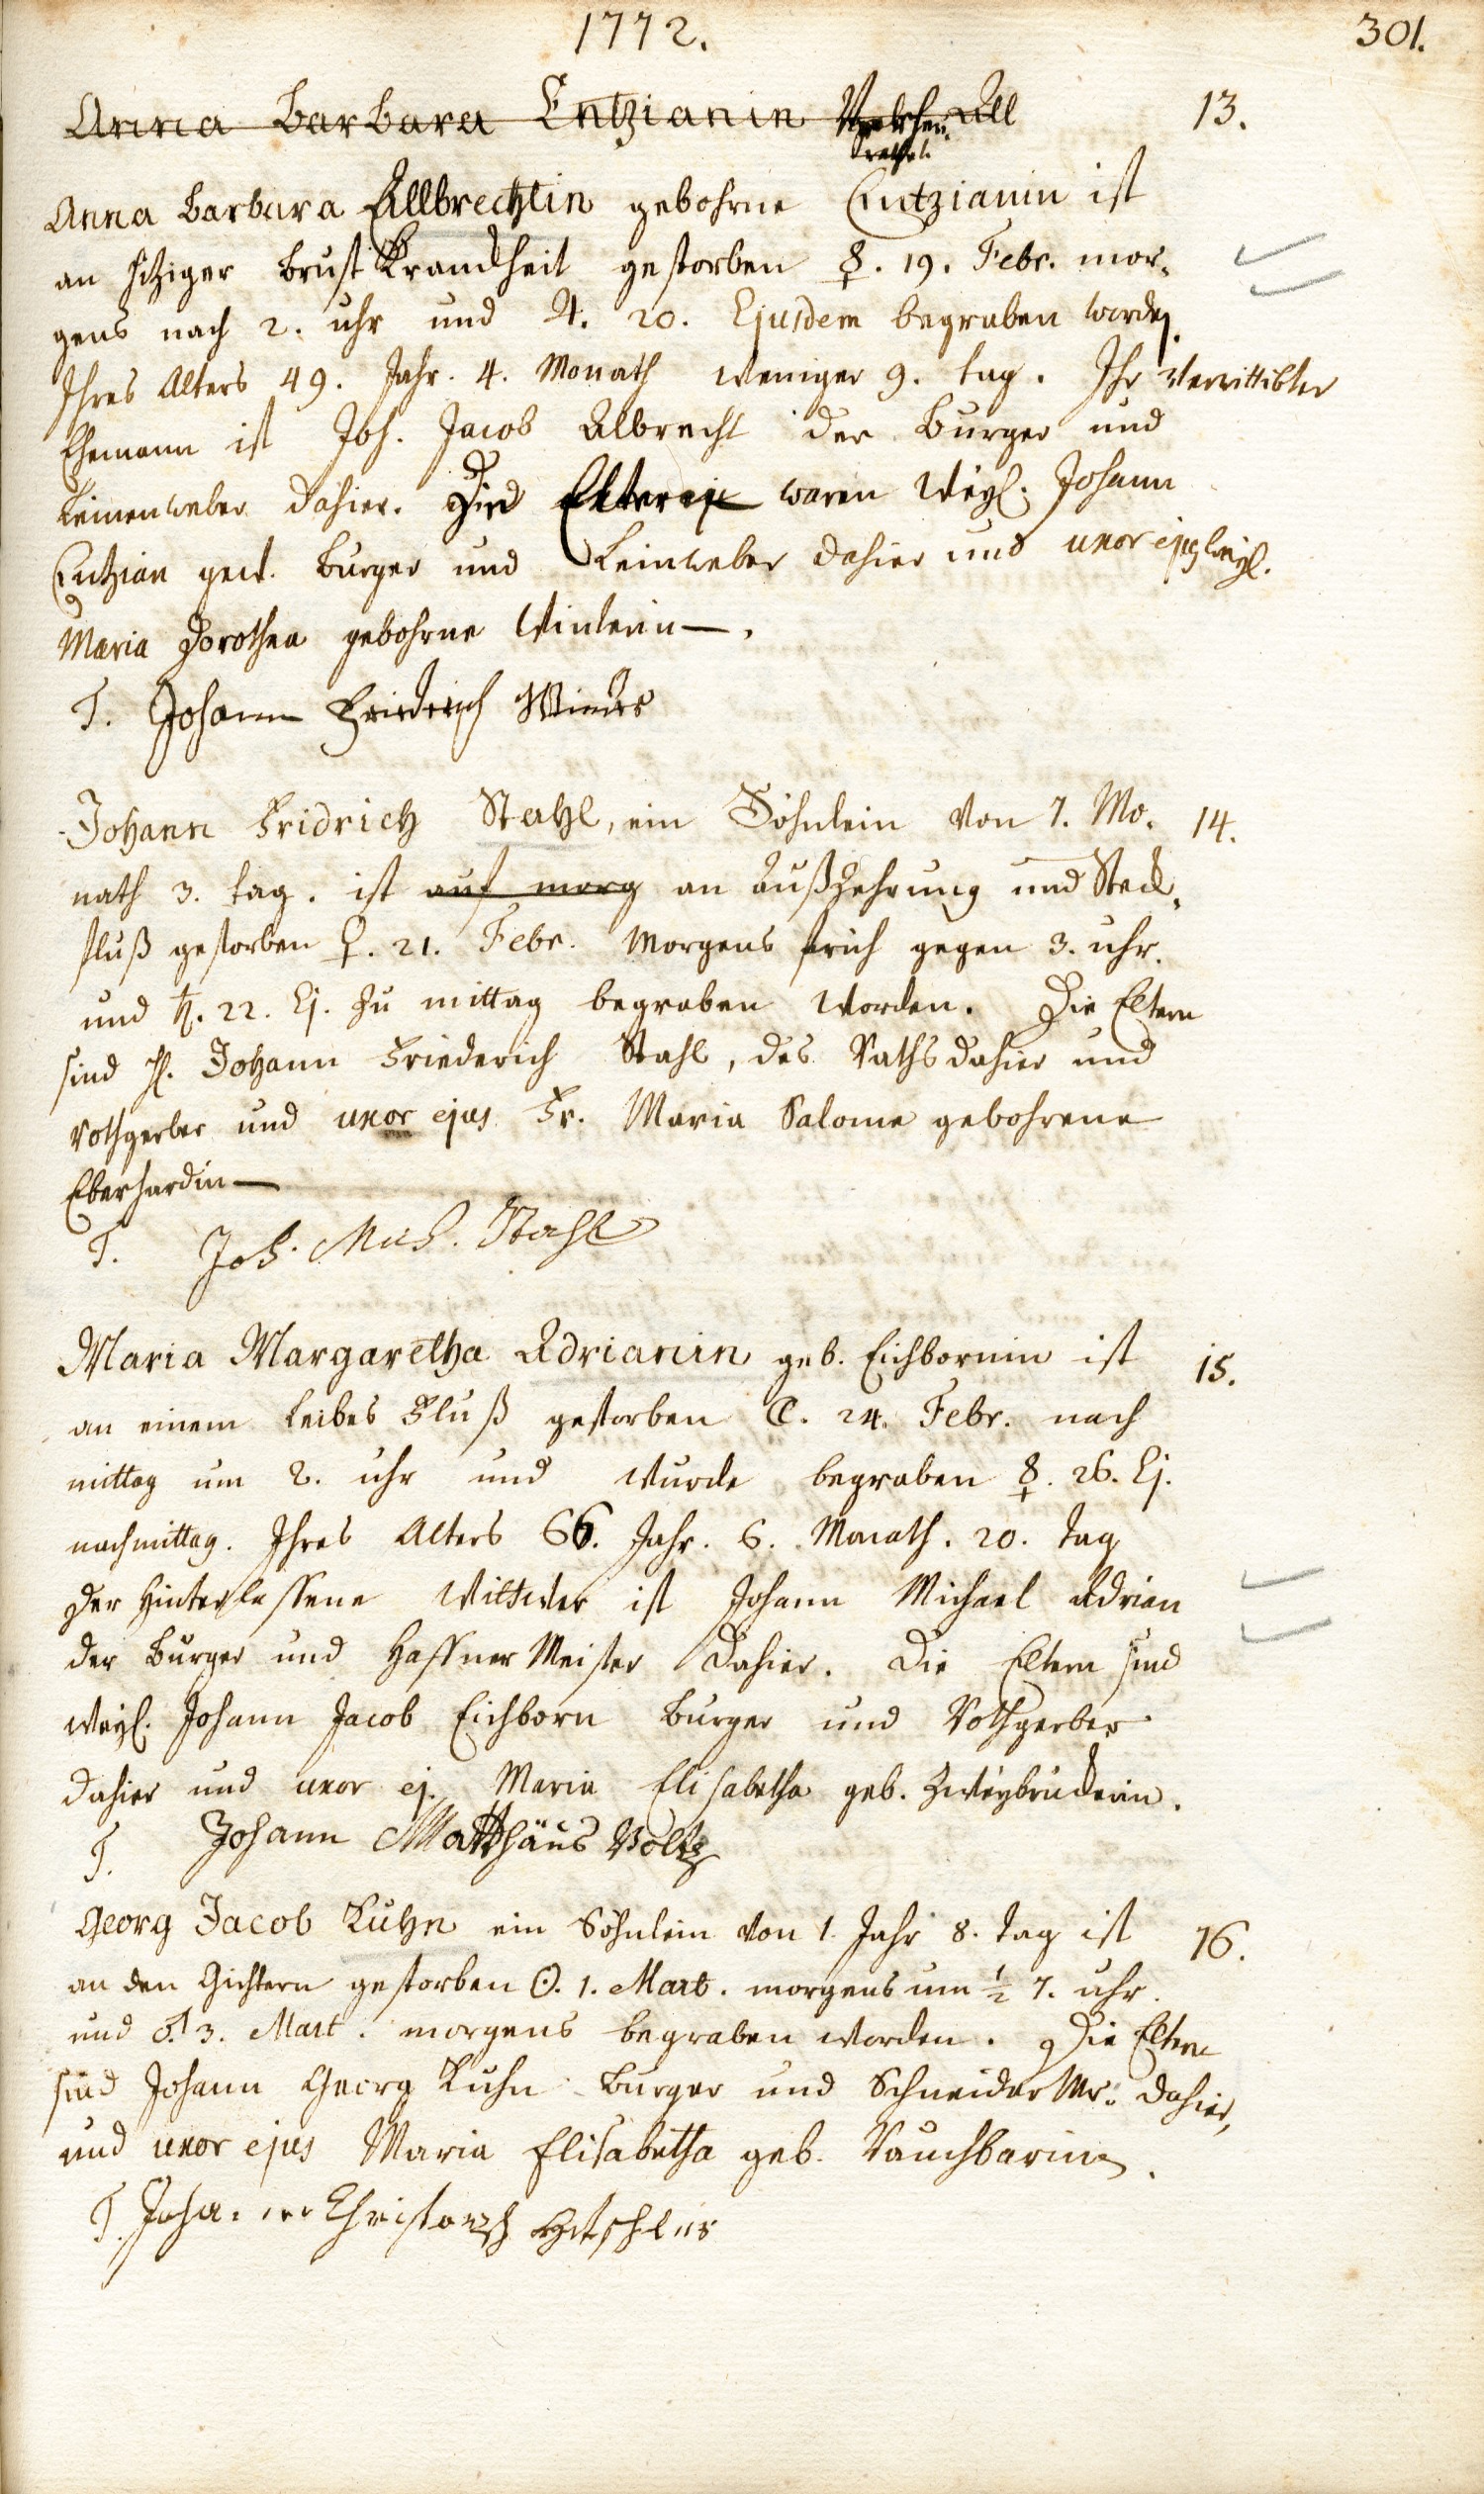 1772.
301.
Anna Barbara Entzianin All
13.
Anna Barbara Allbrechtin gebohrne Entzianin ist
an hitziger Brust Kranckheit gestorben ☿. 19. Febr. mor-
gens nach 2. uhr und ♃. 20. Ejusdem begraben worden.
Ihres Alters 49. Jahr. 4. Monath weniger 9. tag. Ihr Verwittibter
Ehemann ist Joh. Jacob Albrecht der Burger und
Leinenweber dahier. Die Eltern waren weyl. Johann
Entzian gew. Burger und Leinweber dahier und uxor ejus weyl.
Maria Dorothea gebohrne Winterin—.
T. Johann Friederich
Johann Fridrich Stahl, ein Söhnlein von 7. Mo-
14.
nath 3. tag. ist auf morg an Außzehrung und Steck-
fluß gestorben ♀. 21. Febr. Morgens früh gegen 3. uhr.
und ♄. 22. Ej. zu mittag begraben worden. Die Eltern
sind H. Johann Friederich Stahl, des Raths dahier und
Rothgerber und uxor ejus Fr. Maria Salome gebohrene
Eberhardin—
T. Joh. Mich. Stahl
Maria Margaretha Adrianin geb. Eichbornin ist
15.
an einem Leibes Fluß gestorben ☾. 24. Febr. nach
mittag um 2. uhr und wurde begraben ☿. 26. Ej.
nachmittag. Ihres Alters 66. Jahr. 6. Monath. 20. tag
Der Hinterlassene Wittwer ist Johann Michael Adrian
der Burger und Haffner Meister dahier. Die Eltern sind
weyl. Johann Jacob Eichborn Burger und Rothgerber
dahier und uxor ej. Maria Elisabetha geb. Zweybrückerin.
T. Johann Matthäus Voltz
Georg Jacob Kuhn ein Söhnlein von 1. Jahr 8. tag ist
16.
an den Gichtern gestorben ☉. 1. Mart. morgens um ½ 7. uhr.
und ♂. 3. Mart. morgens begraben worden. Die Eltern
sind Johann Georg Kuhn Burger und Schneider Mr. dahier,
und uxor ejus Maria Elisabetha geb. Rauchbarin.
T. Johann Christoph